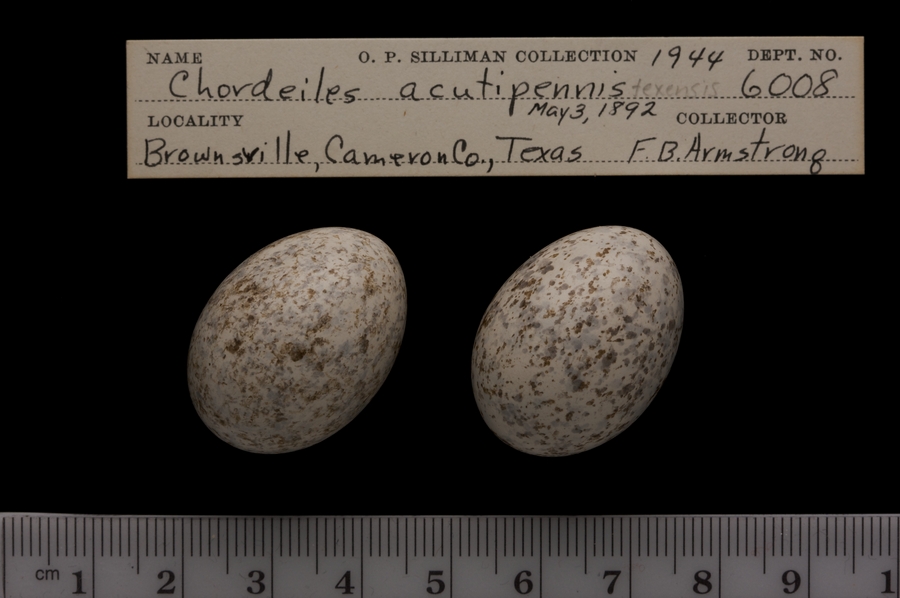 NAME O. P. SILLIMAN COLLECTION 1944 DEPT. NO.
Chordeiles acutipennis texensis 6008
May 3, 1892
LOCALITY COLLECTOR
Brownsville, Cameron Co., Texas F. B. Armstrong
cm 1 2 3 4 5 6 7 8 9 1